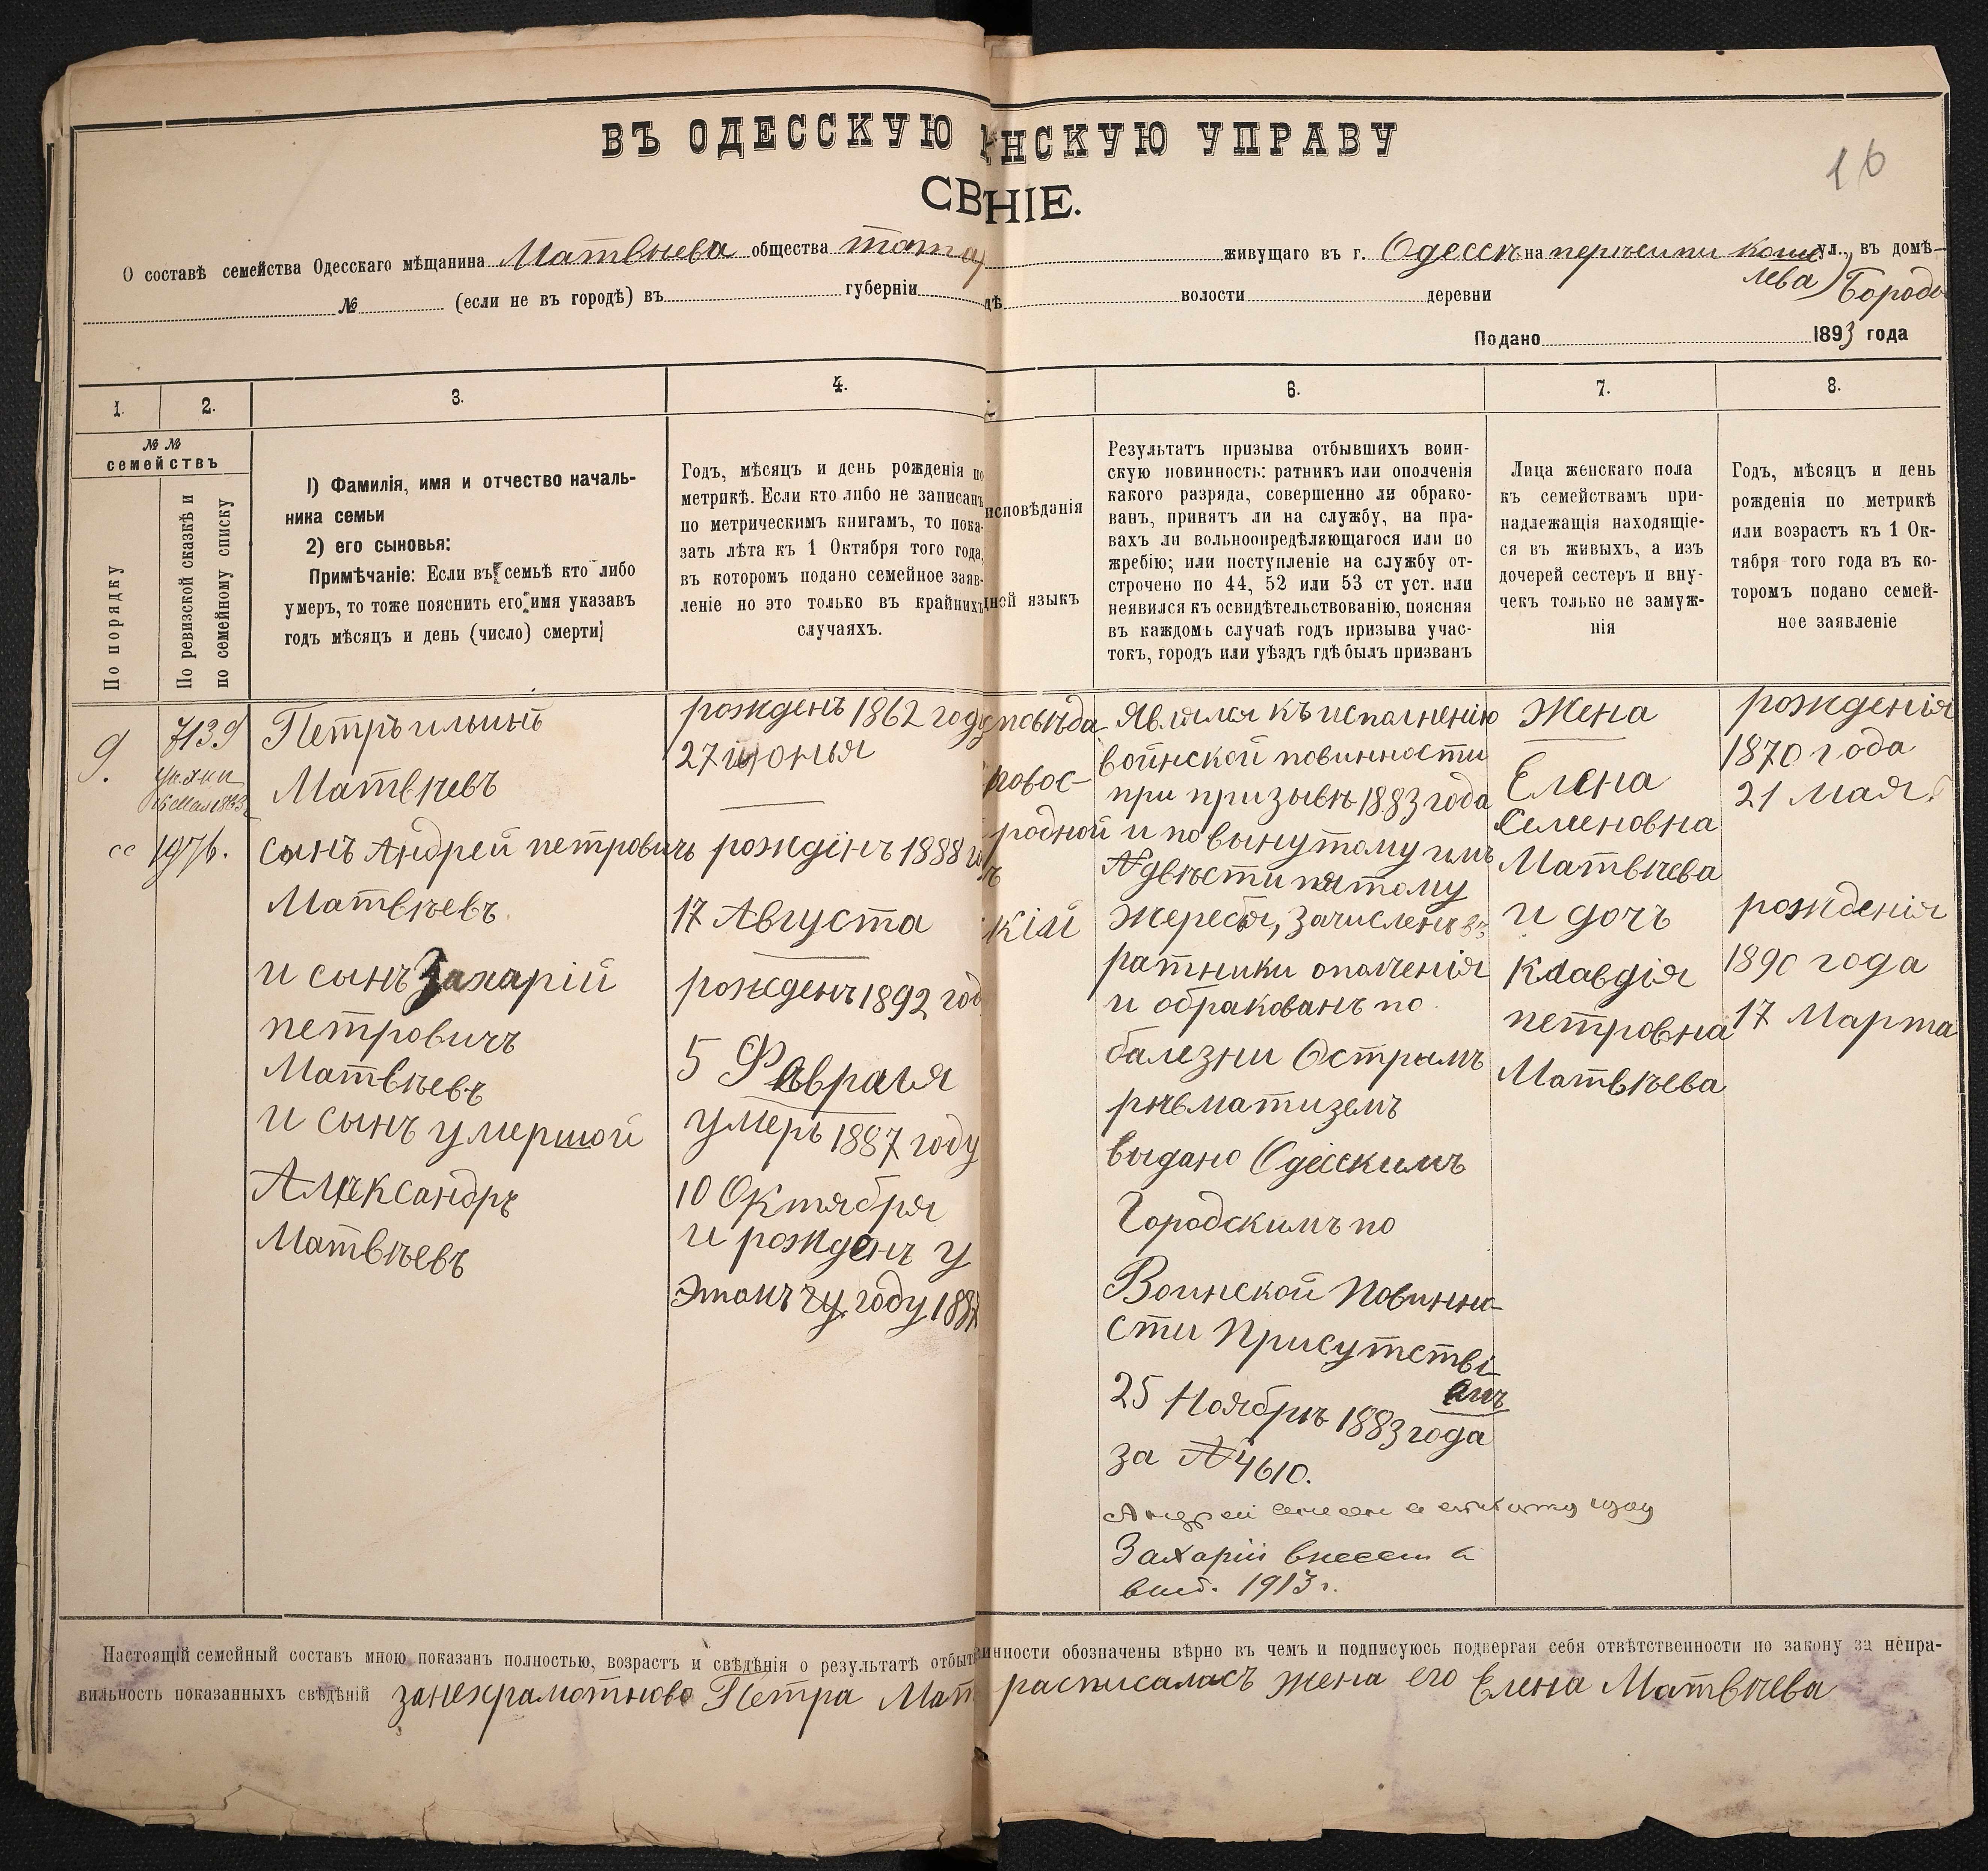 ВЪ ОДЕССКУЮ НСКУЮ УПРАВУ
16
СВ НІЕ.
О составѣ семейства Одесскаго мѣщанина Матвѣева общества живущаго въ г. Одессѣ на ул., въ домѣ
№ (если не въ городѣ) въ губерніи дѣ волости деревни Бород
Подано 1893 года
1. 2. 3. 4. 6. 7. 8.
№ №
семействъ
По порядку
По ревизской сказкѣ и
по семейному списку
1) Фамилія, имя и отчество началь-
ника семьи
2) его сыновья:
Примѣчаніе: Если въ семьѣ кто либо
умеръ, то тоже пояснить его имя указавъ
годъ мѣсяцъ и день (число) смерти
Годъ, мѣсяцъ и день рожденія по
метрикѣ. Если кто либо не записанъ
по метрическимъ книгамъ, то пока-
зать лѣта къ 1 Октября того года,
въ которомъ подано семейное заяв-
леніе но это только въ крайнихъ
случаяхъ.
исповѣданія
ной языкъ
Результатъ призыва отбывшихъ воин-
скую повинность: ратникъ или ополченія
какого разряда, совершенно ли обрако-
ванъ, принятъ ли на службу, на пра-
вахъ ли вольноопредѣляющагося или по
жребію; или поступленіе на службу от-
строчено по 44, 52 или 53 ст уст. или
неявился къ освидѣтельствованію, поясняя
въ каждомъ случаѣ годъ призыва учас-
токъ, городъ или уѣздъ гдѣ былъ призванъ
Лица женскаго пола
къ семействамъ при-
надлежащія находящіе-
ся въ живыхъ, а изъ
дочерей сестеръ и вну-
чекъ только не замуж-
нія
Годъ, мѣсяцъ и день
рожденія по метрикѣ
или возрастъ къ 1 Ок-
тября того года въ ко-
торомъ подано семей-
ное заявленіе
9.
7139
1976.
Петръ ильинъ
Матвѣевъ
сынъ Андрей петровичъ
Матвѣевъ
и сынъ Захарій
петровичъ
Матвѣевъ
и сынъ умершой
Александръ
Матвѣевъ
рожденъ 1862 году
27 июнья
рождінъ 1888
17 Августа
рожденъ 1892 год
5 Февраля
умеръ 1887 году
10 Октября
и рожденъ у
этомъ году 188
повѣда
родной
кій
Являлся къ исполненію
воинской повинности
при призывѣ 1883 года
и по вынутому имъ
№ двѣсти пятому
жеребья, зачисленъ въ
ратники ополченія
и обракованъ по
балезни Острымъ
рѣвматиземъ
выдано Одесскимъ
Городскимъ по
Воинской Повинно-
сти Присутстві-
емъ
25 Ноябрѣ 1883 года
за № 4610.
Андрей
Захарій внесен в
1913 г.
Жена
Елена
Семеновна
Матвѣева
и дочъ
Клавдія
петровна
Матвѣева
рожденія
1870 года
21 мая.
рожденія
1890 года
17 Марта
Настоящій семейный составъ мною показанъ полностью, возрастъ и свѣдѣнія о результатѣ отбыт инности обозначены вѣрно въ чемъ и подписуюсь подвергая себя отвѣтственности по закону за непра-
вильность показанныхъ свѣдѣній занехрамотново Петра Мат расписаласъ жена его Елена Матвѣева